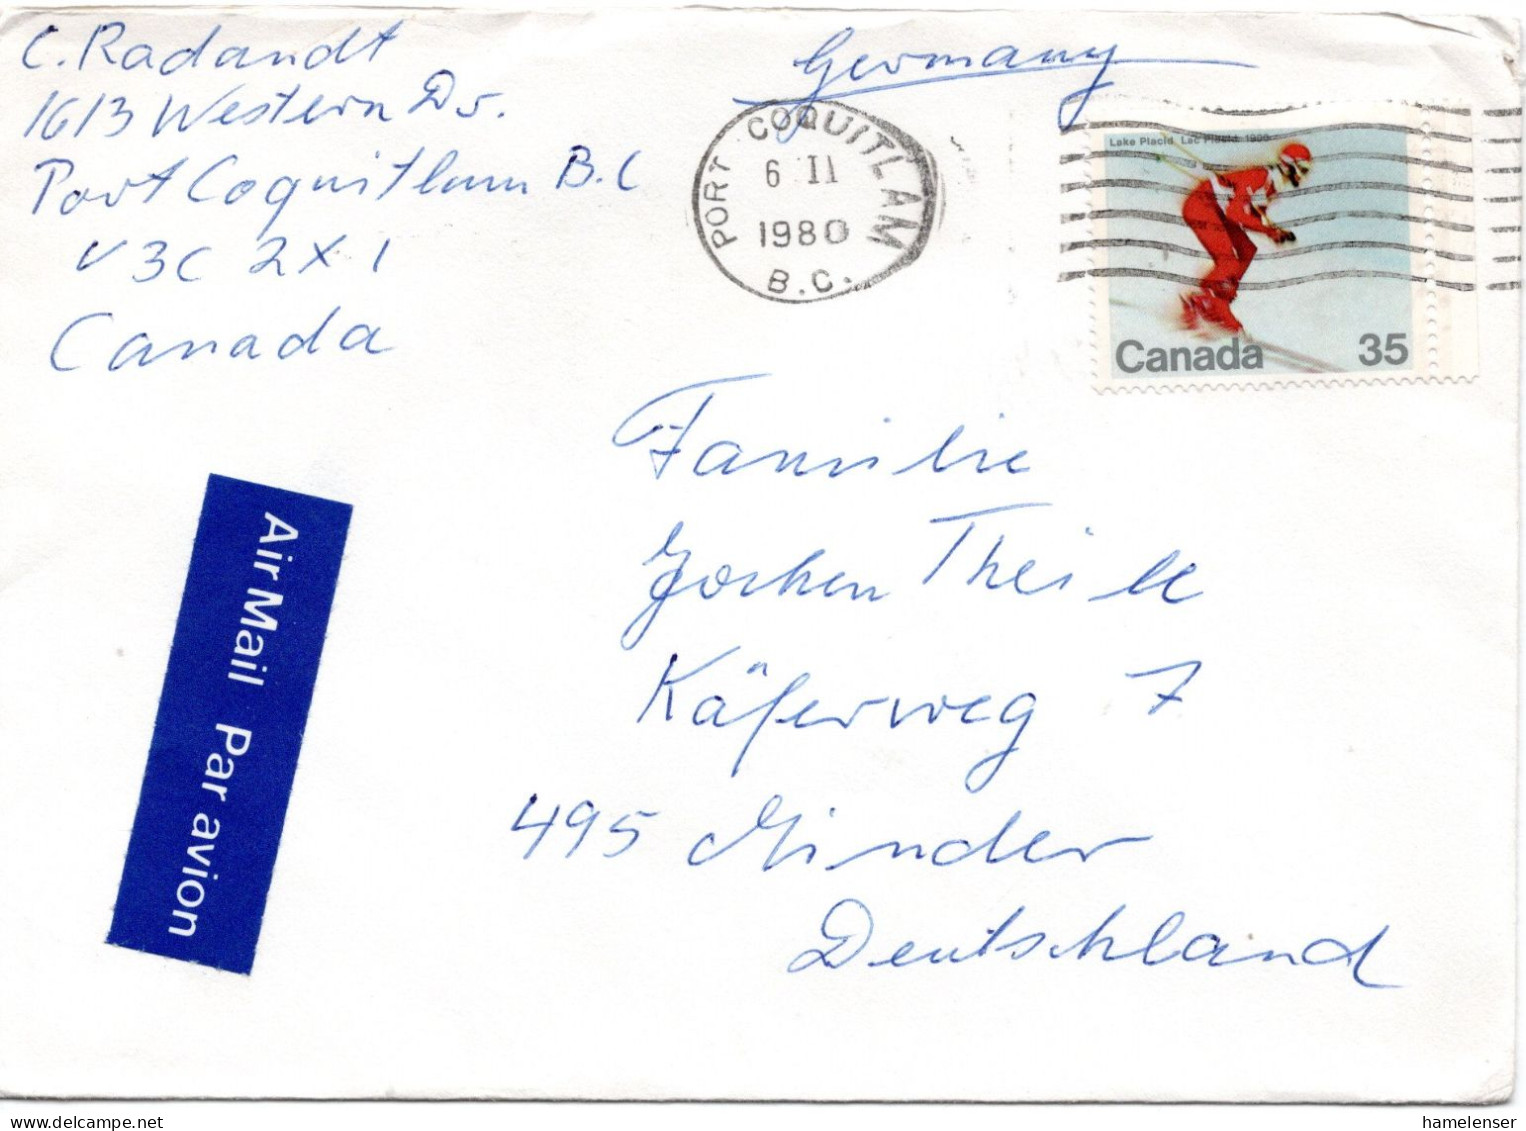 C. Radandt
1613 Western Dr.
Port Coquitlam B.C
V3C 2X1
Canada
Germany
PORT COQUITLAM
6 II
1980
B.C.
Lake Placid Lac Placid, 1980
Canada 35
Air Mail Par avion
Familie
Jochen Theile
Käferweg 7
495 Minden
Deutschland
hamelenser